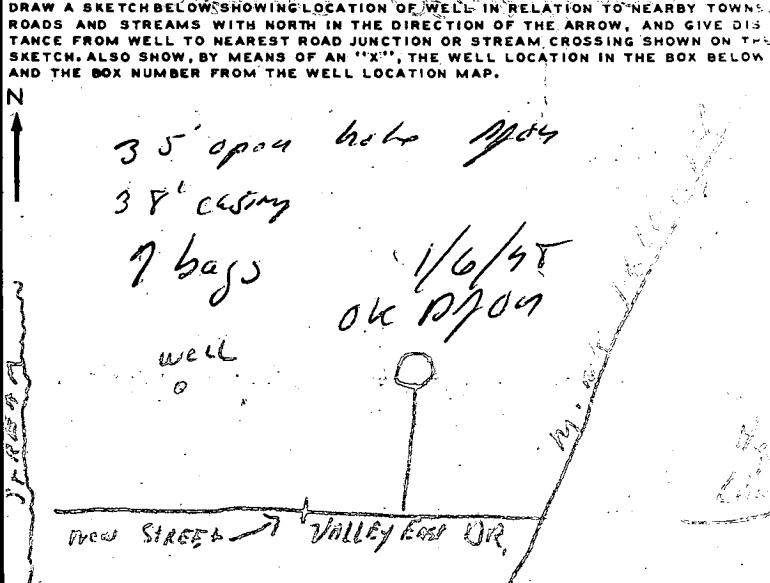 DRAW A SKETCH BELOW SHOWING LOCATION OF WELL IN RELATION TO NEARBY TOWNS
ROADS AND STREAMS WITH NORTH IN THE DIRECTION OF THE ARROW, AND GIVE DIS
TANCE FROM WELL TO NEAREST ROAD JUNCTION OR STREAM CROSSING SHOWN ON THE
SKETCH. ALSO SHOW, BY MEANS OF AN "X", THE WELL LOCATION IN THE BOX BELOW
AND THE BOX NUMBER FROM THE WELL LOCATION MAP.
N
35' open hole
38' casing
7 bags
OK
well
STREAM
NEW STREET
VALLEY EAST DR.